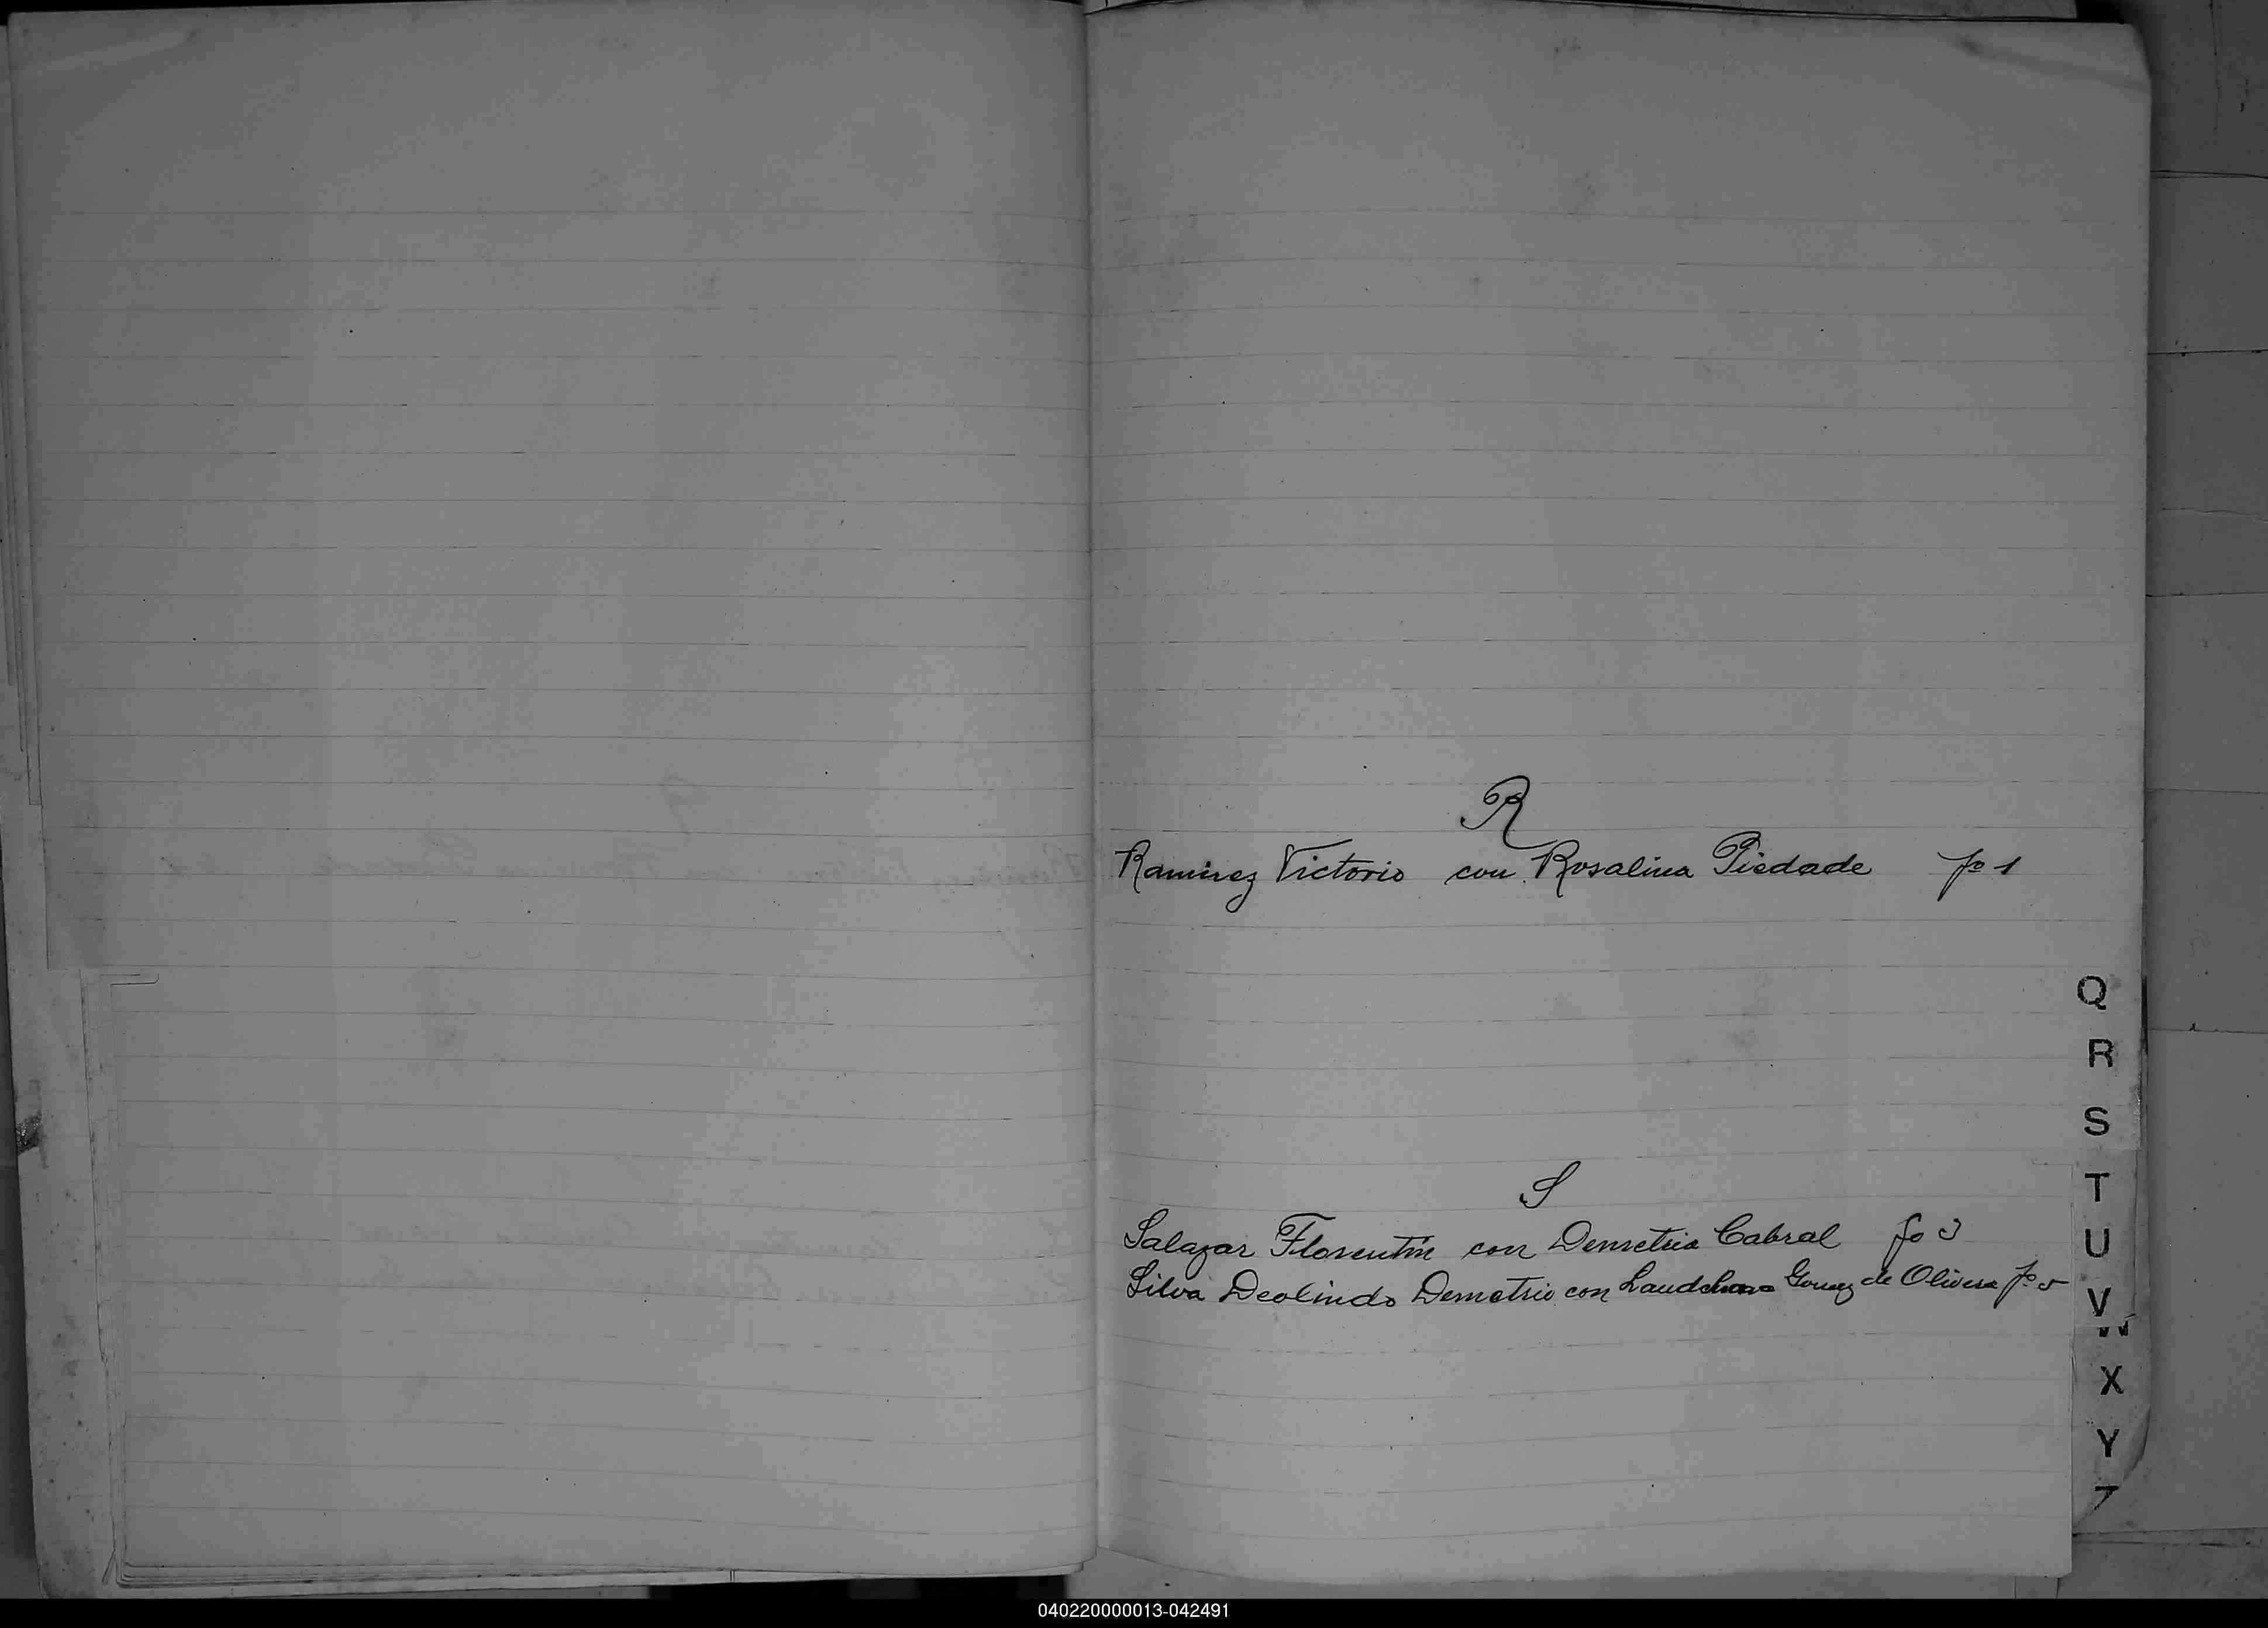 R
Ramirez Victorio con Rosalina Piedade fo 1
Q
R
S
T
U
V
W
X
Y
Z
S
Salazar Florentín con Demetria Cabral fo 3
Silva Deolindo Demetrio con Gomez de Olivera fo 5
040220000013-042491